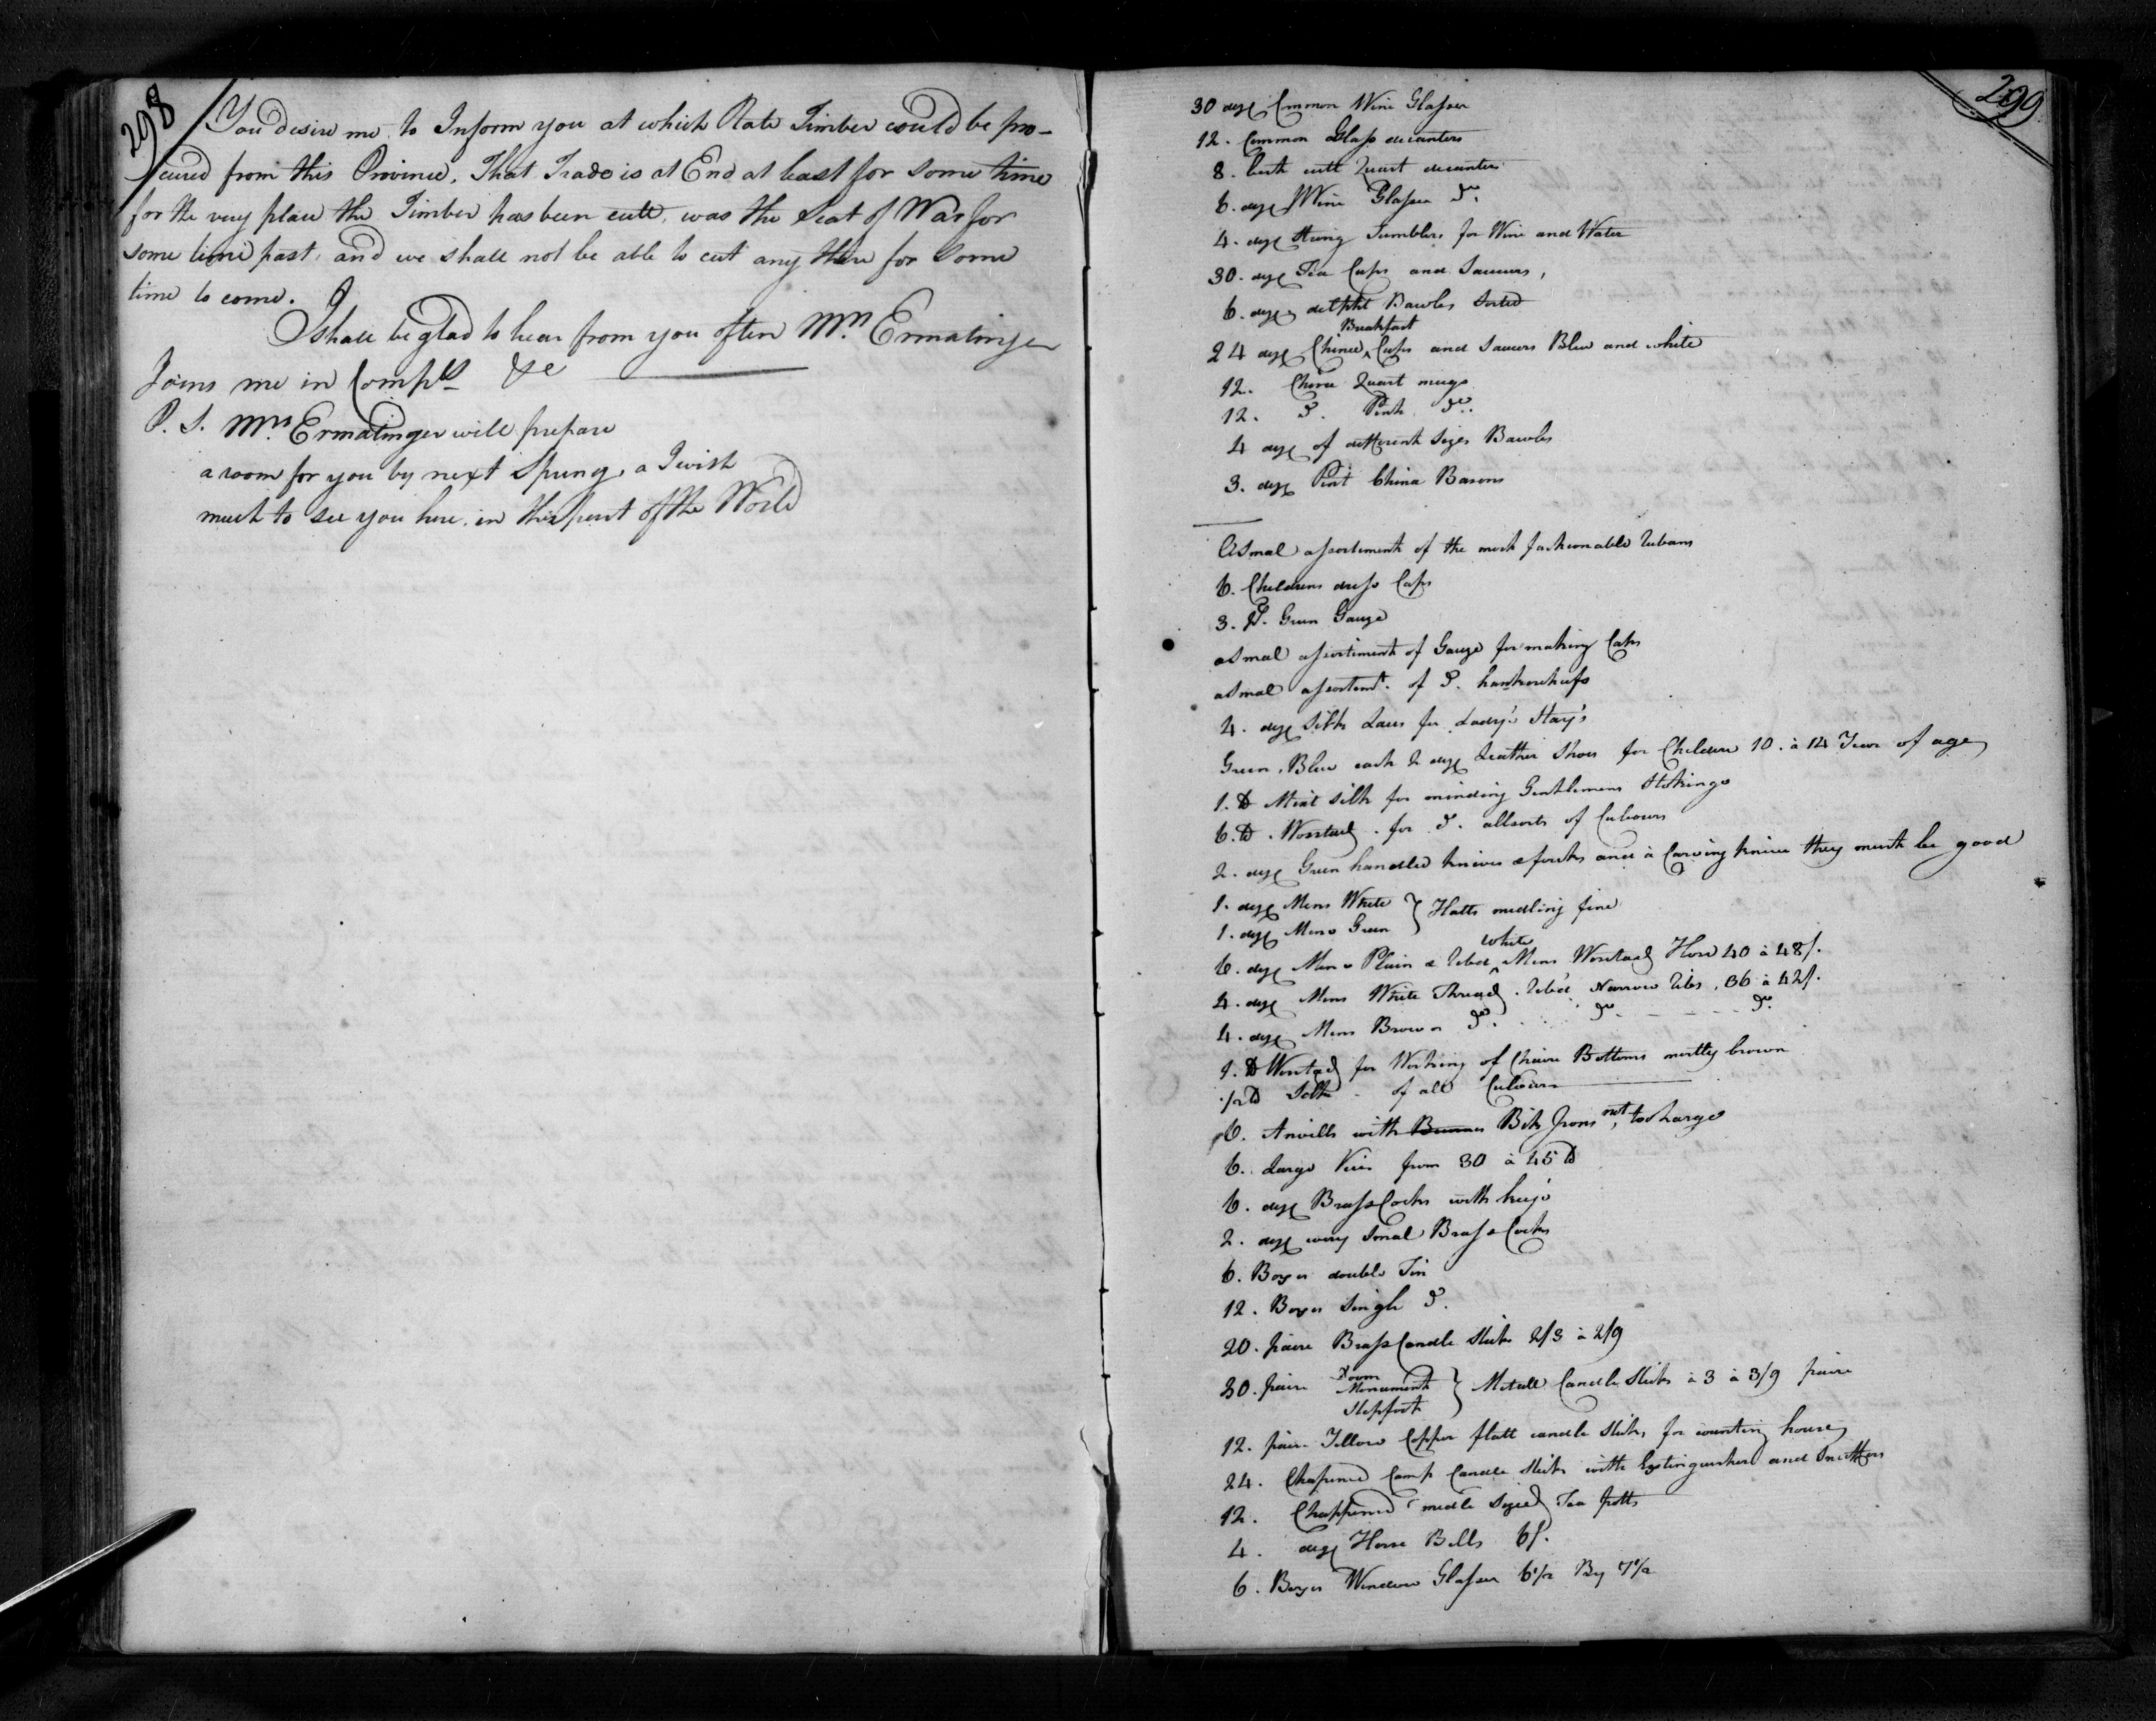 298
You desire me to Inform you at which Rate Timber could be pro-
cured from this Province, That Trade is at End at least for some time
for the very place the Timber has been cutt, was the Seat of War for
some time past, and we shall not be able to cut any there for some
time to come.
I shall be glad to hear from you often Mrs Ermatinger
Joins me in Complts &c
P. S. Mrs Ermatinger will prepare
a room for you by next Spring, a I wish
much to see you here in this part of the World
299
30 doz Common Wine Glasses
12. Common Glass decanters
8. best cutt Quart decanters
6. doz Wine Glasses Do.
4. doz strong Tumblers for Wine and Water
30. doz Tea Cups and Saucers,
6. doz delpht Bawles sorted
24 doz Chinee Breakfast Cups and Saucers Blue and white
12. Chinee Quart mugs
12. Do. Pint Do.
4 doz of different Sizes Bawles
3. doz Pint China Basons
A Smal assortiment of the most fashionable Rubans
6. Childrens dress Caps
3. Ps. Green Gauze
a Smal assortiment of Gauze for making Caps
a Smal assortemt. of Do. hankerchiefs
4. doz Silk Laces for Lady's Stay's
Green, Blue each 2 doz Leather Shoes for Children 10. à 14 Years of age
1. lb Mixt silk for minding Gentlemens Stokings
6. lb. Worsted. for Do. all sorts of Culours
2. doz Green handled knives & forks and à Carving knive they must be good
1. doz Mens White } Hatts midling fine
1. doz Mens Green
6. doz Mens Plain & Ribed white Mens Worstead Hose 40 à 48/.
4. doz Mens White Thread. Rib'd Narrow Ribs, 36 à 42/.
4. doz Mens Brown Do. Do. Do.
1. lb Worsted for Working of Chaire Bottoms mostly brown
1/2 lb Silk of all Culours
6. Anvills with Bik Irons, not to Large
6. Large Vices from 30 à 45 lb
6. doz Brass Cocks with keys
2. doz very Smal Brass Cocks
6. Boxes double Tin
12. Boxes Single Do.
20. paire Brass Candle Sticks 2/3 à 2/9
30. paire Room Monument Stepfoot } Metall Candle Sticks à 3 à 3/9 paire
12. paire Yellow Copper flatt candle sticks, for counting house
24. Chapened Camp Candle Sticks with Extinguisher and Snuffers
12. Chappened midle sized Tea potts
4. doz Horse Bells 6/.
6. Boxes Window Glasses 6 1/2 By 7 1/2